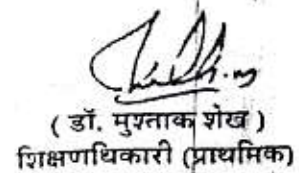 ( डॉ. मुश्ताक शेख )
शिक्षणाधिकारी (प्राथमिक)